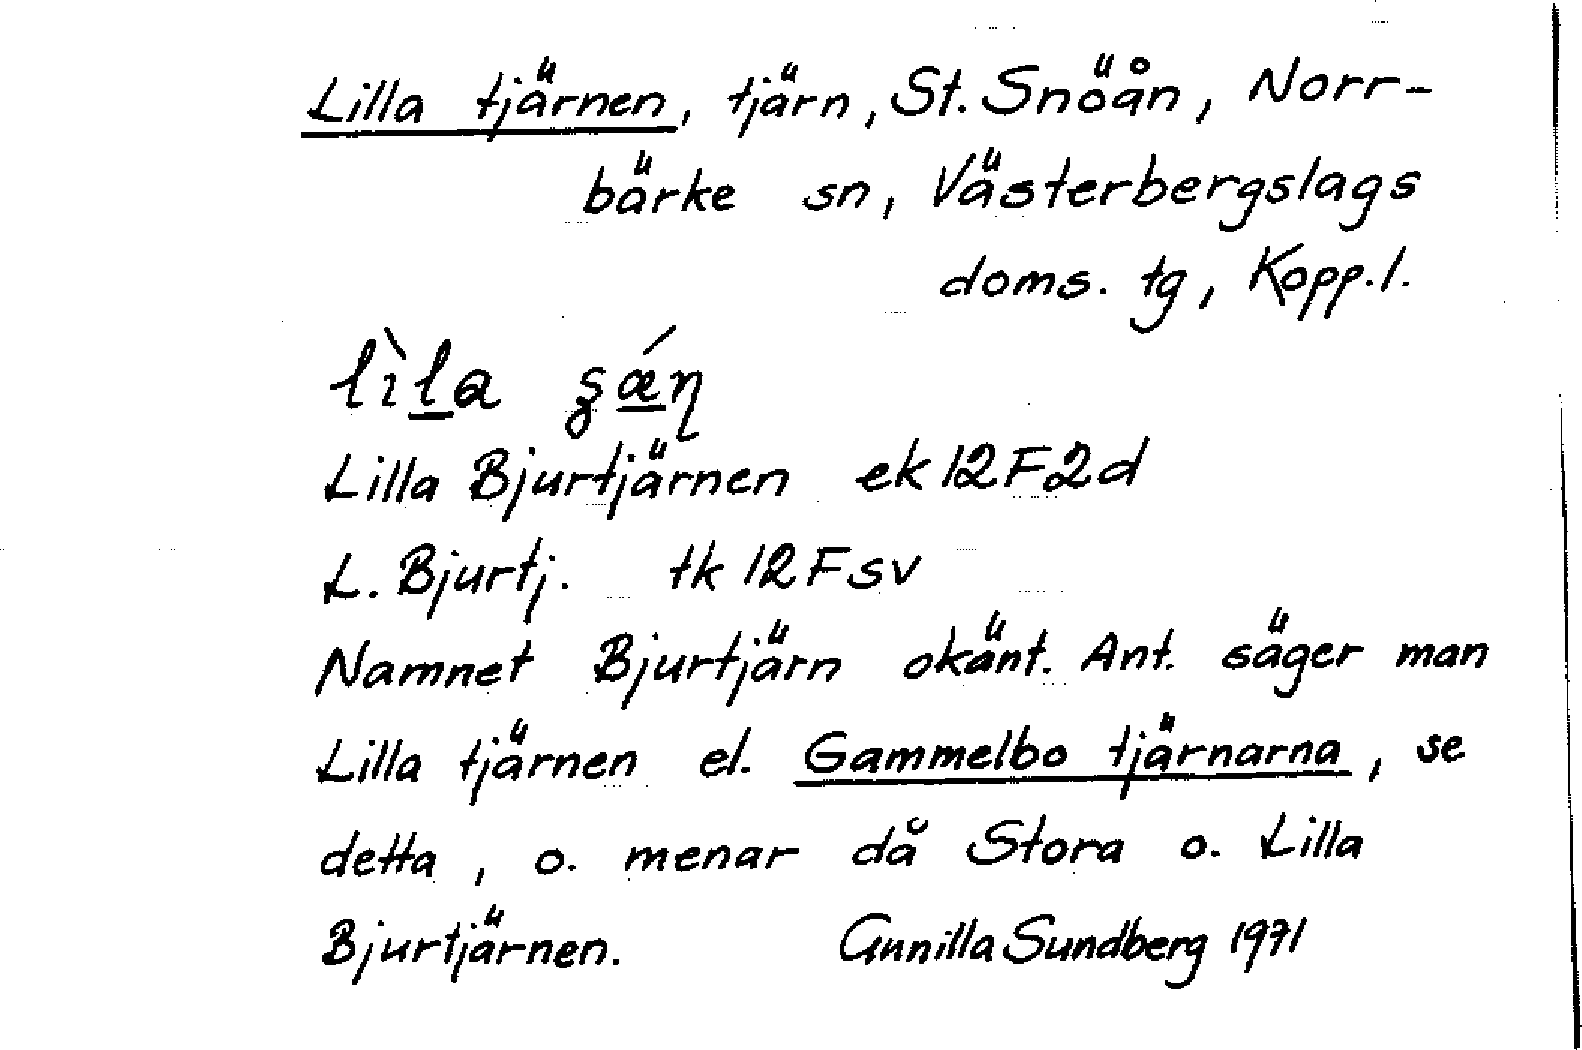 Lilla tjärnen, tjärn, St. Snöån, Norr-
bärke sn, Västerbergslags
doms. tg, Kopp. l.
lìla
Lilla Bjurtjärnen ek 12F2d
L. Bjurtj. tk 12F sv
Namnet Bjurtjärn okänt. Ant. säger man
Lilla tjärnen el. Gammelbo tjärnarna, se
detta, o. menar då Stora o. Lilla
Bjurtjärnen. Gunilla Sundberg 1971